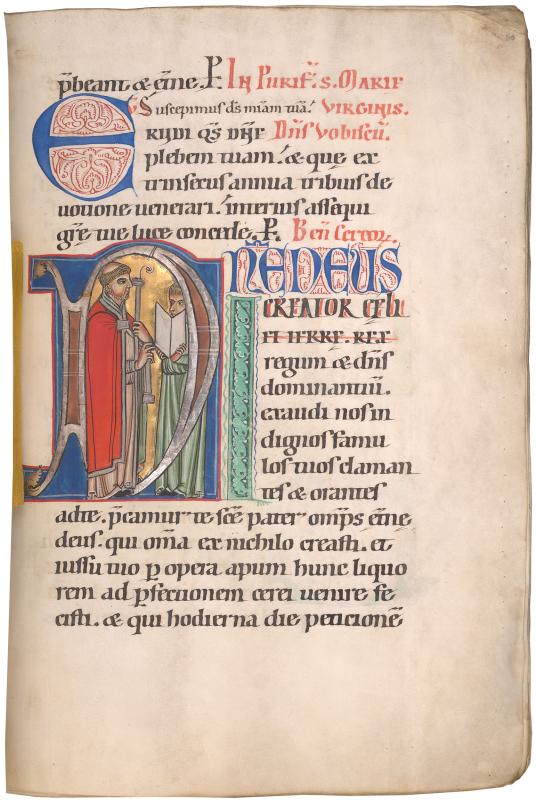 p̄beant. & et̄ne. P. IN PURIF̄. S. MARIE
Suscepimus ds̄ mīam tuā. VIRGINIS.
ERUDI Q̄S DN̄E Dn̄s vobiscū.
plebem tuam. & que ex
trinsecus annua tribuis de
uotione uenerari. interius assequi
grē tue luce concede. P. Ben̄
DN̄E DEUS
CREATOR CELI
ET TERRE. REX
regum & dn̄s
dominantiū.
exaudi nos in
dignos famu
los tuos claman
tes & orantes
adte. p̄camur te scē pater omp̄s et̄ne
deus. qui om̄a ex nichilo creasti. et
iussu tuo p̲ opera apum hunc liquo
rem ad p̲fectionem cerei uenire fe
cisti. & qui hodierna die peticionē